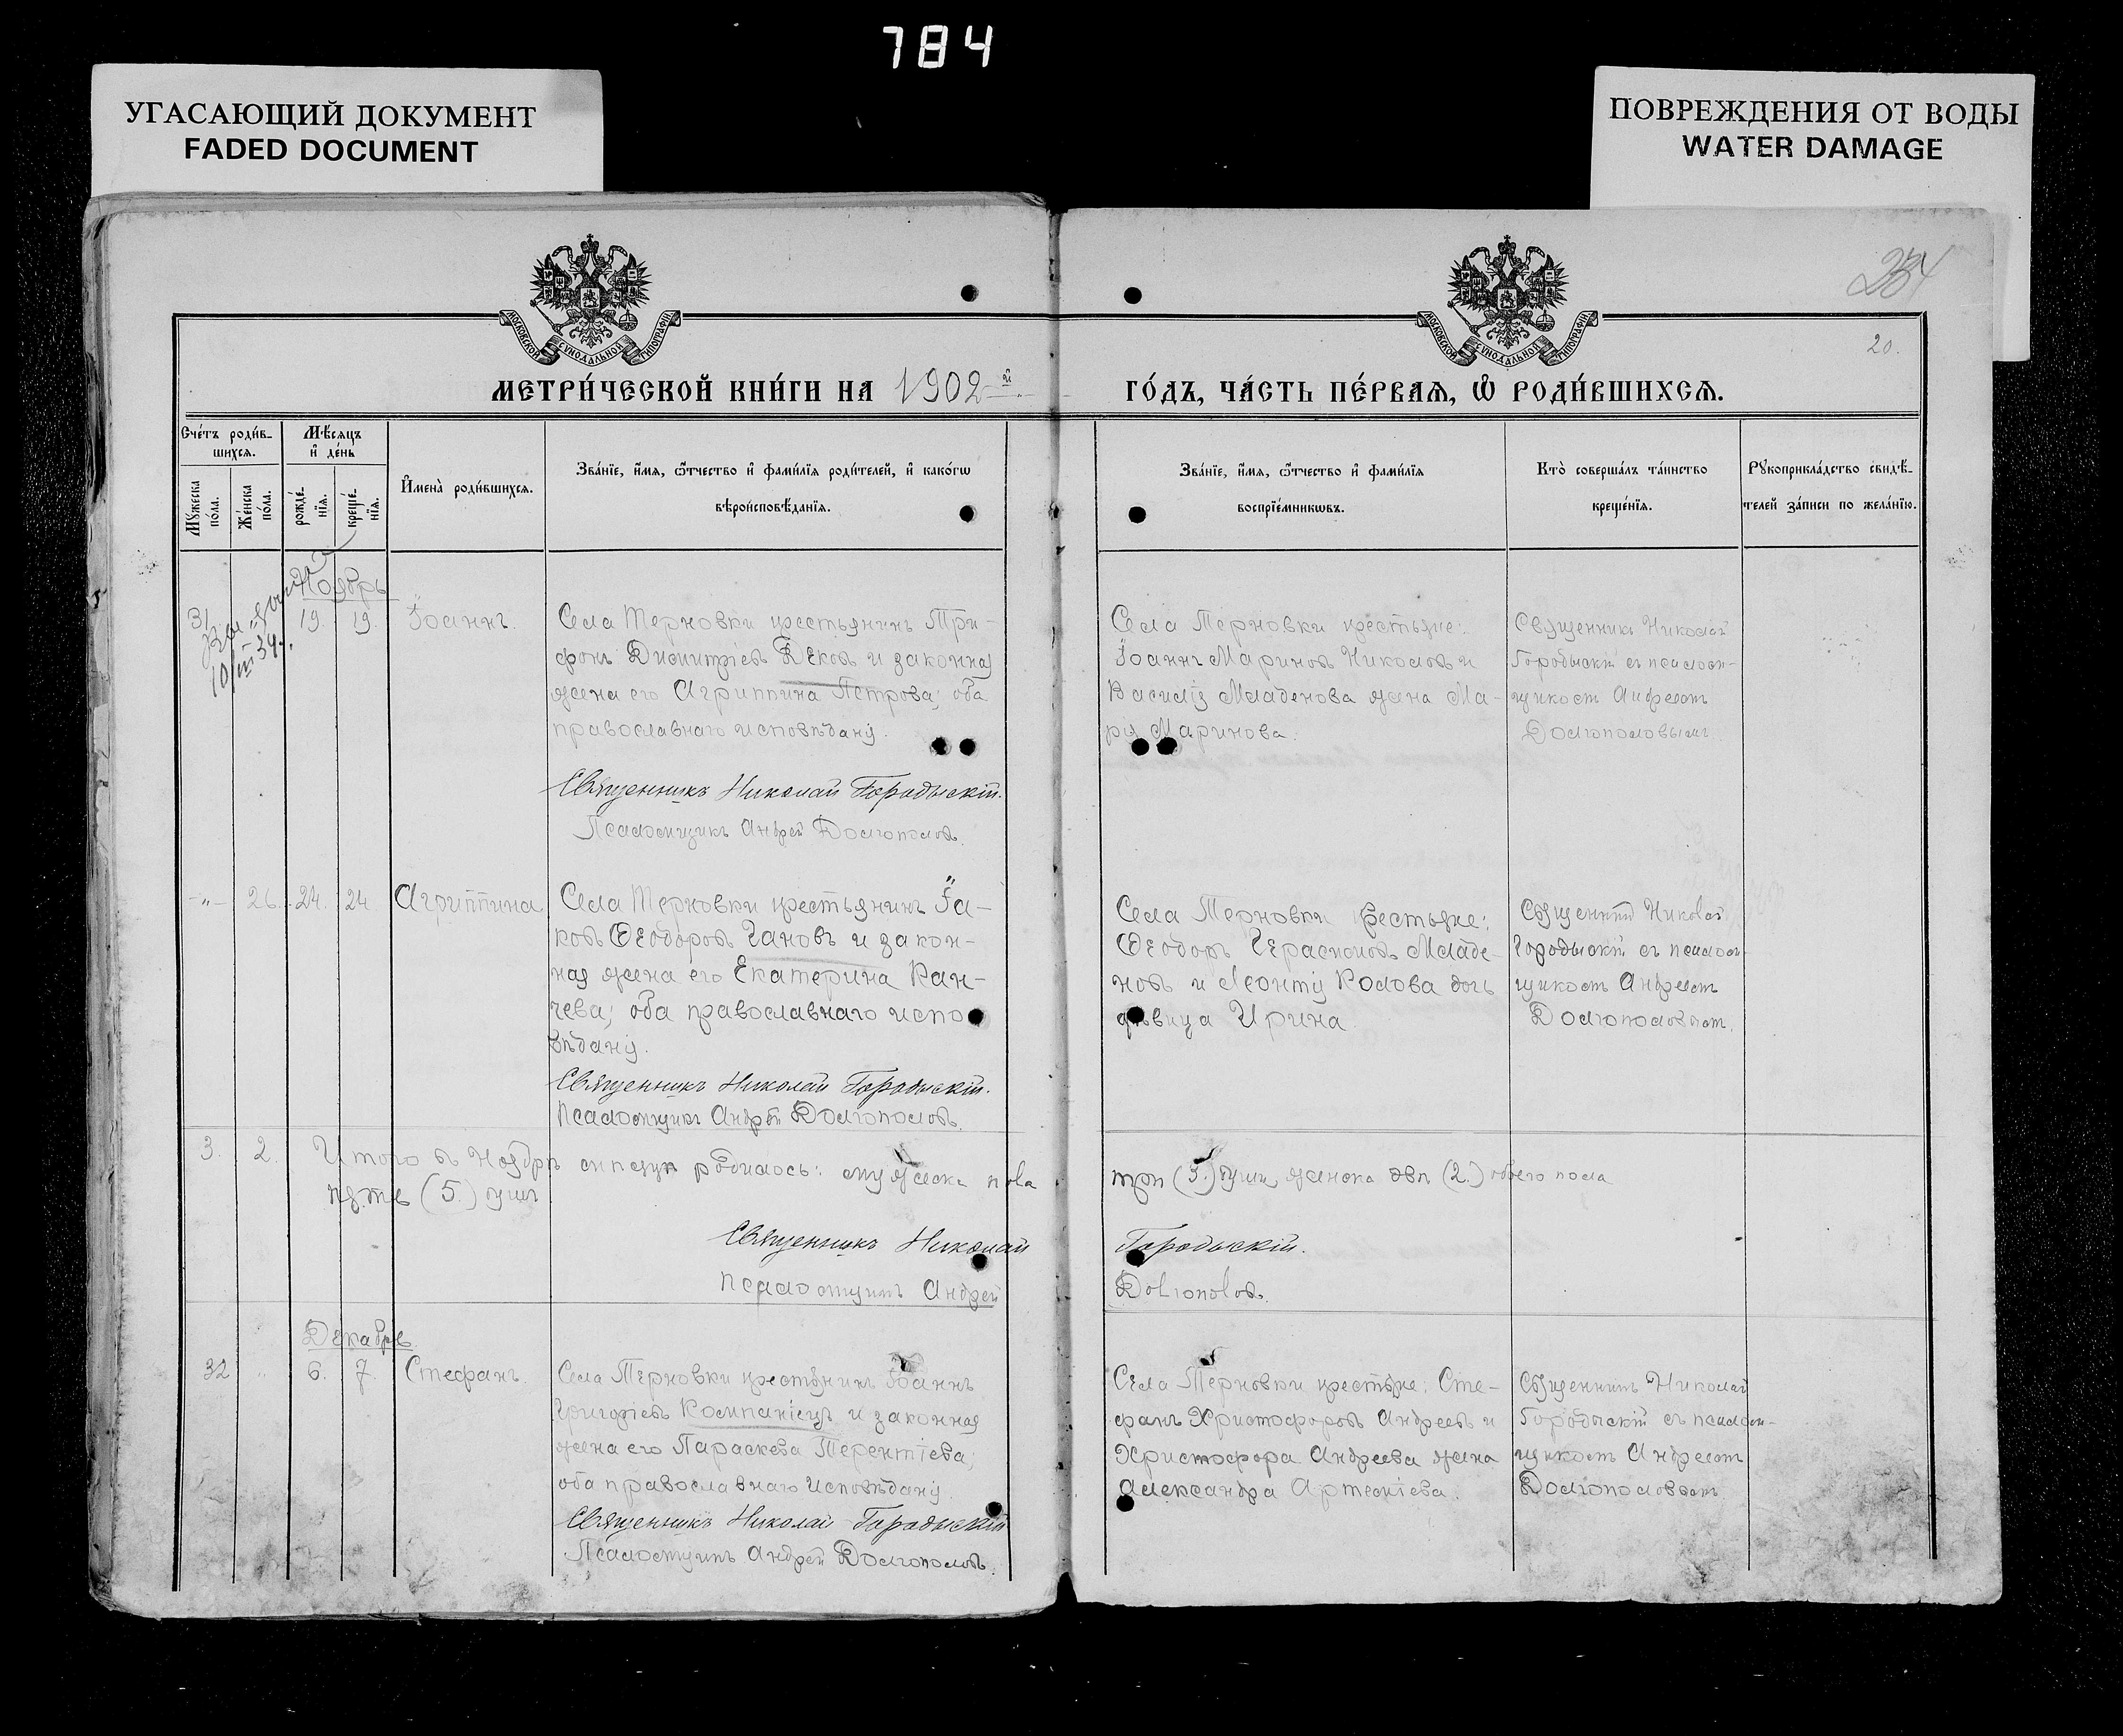 784
УГАСАЮЩИЙ ДОКУМЕНТ
FADED DOCUMENT
ПОВРЕЖДЕНИЯ ОТ ВОДЫ
WATER DAMAGE
МОСКОВСКОЙ СѴНОДАЛЬНОЙ ТИПОГРАФІИ
МОСКОВСКОЙ СѴНОДАЛЬНОЙ ТИПОГРАФІИ
20.
МЕТРИ́ЧЕСКОЙ КНИ́ГИ НА 1902-й
ГО́ДЪ, ЧА́СТЬ ПЕ́РВАѦ, Ѿ РОДИ́ВШИХСѦ.
Сче́тъ роди́в-
шихсѧ.
Му́жеска
по́ла.
Же́нска
по́ла.
Мѣ́сѧцъ
и҆ де́нь
рожде́-
нїѧ.
креще́-
нїѧ.
И҆мена̀ роди́вшихсѧ.
Зва́нїе, и҆́мѧ, ѻ҆́тчество и҆ фами́лїѧ роди́телей, и҆ како́гѡ
вѣроисповѣ́данїѧ.
Зва́нїе, и҆́мѧ, ѻ҆́тчество и҆ фами́лїѧ
воспрїе́мникѡвъ.
Кто̀ соверша́лъ та́инство
креще́нїѧ.
Рꙋкоприкла́дство свидѣ́-
телей за́писи по жела́нїю.
Ноябрь
10/III 34 г.
31. 19. 19. Іоаннъ.
Села Терновки крестьянинъ Три-
фонъ Димитріевъ Дековъ и законная
жена его Агриппина Петрова; оба
православнаго исповѣданія.
Священникъ Николай Городыскій.
Псаломщикъ Андрей Долгополовъ.
Села Терновки крестьяне:
Іоаннъ Мариновъ Николовъ и
Василія Младенова жена Ма-
рія Маринова.
Священникъ Николай
Городыскій съ псалом-
щикомъ Андреемъ
Долгополовымъ
-"- 26. 24. 24. Агриппина
Села Терновки крестьянинъ Іа-
ковъ Ѳеодоровъ Гановъ и закон-
ная жена его Екатерина Кан-
чева; оба православнаго испо
вѣданія.
Священникъ Николай Городыскій.
Псаломщикъ Андрей Долгополовъ.
Села Терновки крестьяне:
Ѳеодоръ Герасимовъ Младе-
новъ и Леонтія Колова дочь
дѣвица Ирина.
Священникъ Николай
Городыскій съ псалом-
щикомъ Андреемъ
Долгополовымъ.
3. 2. Итого въ Ноябрѣ мѣсяцѣ родилось: мужеска пола
три (3.) души, женска двѣ (2.) обоего пола
пять (5.) душъ
Священникъ Николай Городыскій.
Псаломщикъ Андрей Долгополовъ.
Декабрь
32 " 6. 7. Стефанъ.
Села Терновки крестьянинъ Іоаннъ
Григоріевъ Компаніецъ и законная
жена его Параскева Терентіева;
оба православнаго исповѣданія.
Священникъ Николай Городыскій
Псаломщикъ Андрей Долгополовъ.
Села Терновки крестьяне: Сте-
фанъ Христофоровъ Андреевъ и
Христофора Андреева жена
Александра Артеміева.
Священникъ Николай
Городыскій съ псалом-
щикомъ Андреемъ
Долгополовымъ